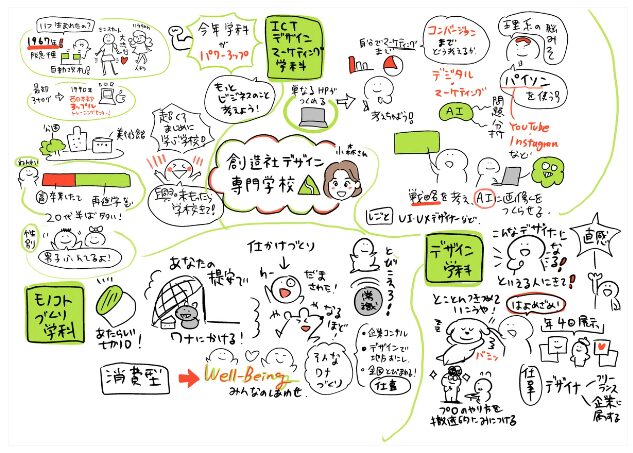 いつ生まれたの?
1967年!
ミニスカート
大流行
自動改札!
最初
1990年
公園
美術館
超くろ
まじめに
学ぶ学校!
今年 学科
が
パワーアップ
ICT
デザイン
マーケティング
学科
もっと
ビジネスのこと
考えよう!
単なるHPが
つくれる
自分でマーケティング
まで
考えちゃう!
コンバージョン
まで
どう考えるか
デジタル
マーケティング
AI
問題
理系の脳みそ
パイソン
を使う!
YouTube
Instagram
など
戦略を考え、AIに画像を
つくらせる
しごと
UI・UXデザイナーなど
創造社デザイン
専門学校
小森さん
20代半ばタイ!
性別
男子ふえてるよ!
モノコト
づくり
学科
あたらしい
切り口!
あなたの
提案で
ワナにかける!
仕かけづくり
わー
だま
された!
なる
ほど
とびこえろ!
常識
消費型
Well-Being
みんなのしあわせ
そんな
ワナ
づくり
・企業コンサル
・デザインで
地方おこし
仕事
デザイン
学科
こんなデザイナーに
なる!
といえる人にきて!
はよめざめい
直感
とことんつきつめて
いこうや!
年4回展示
プロのやり方を
徹底的にみにつける
仕事
デザイナー
フリー
ランス
企業に
属する